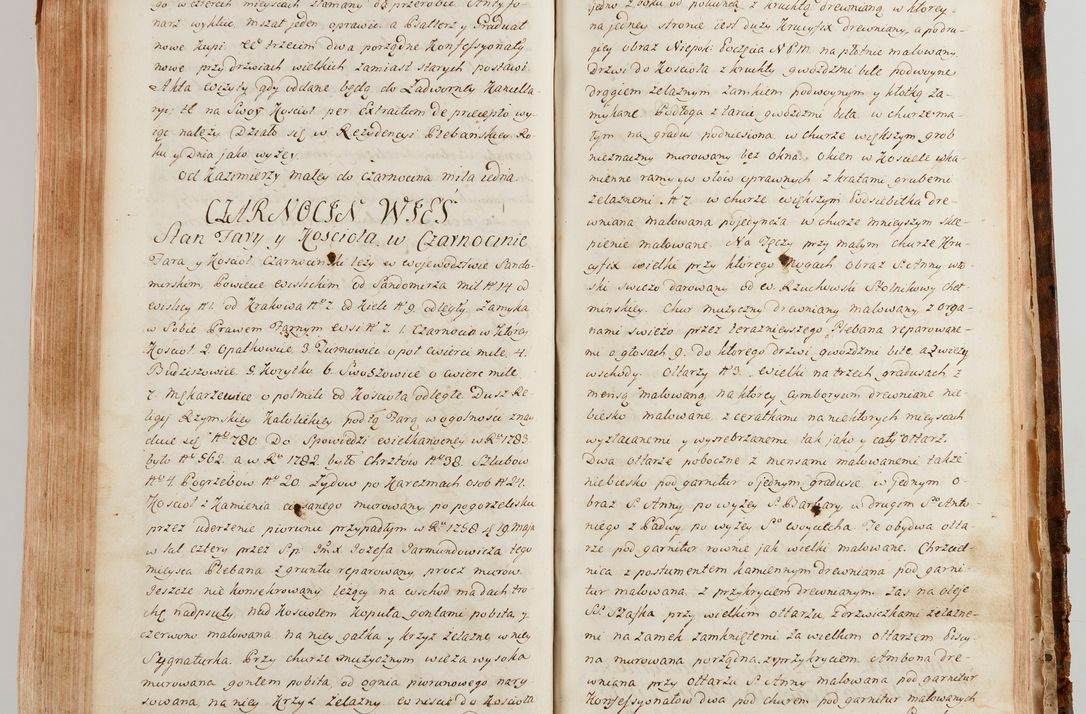 go w czterech mieyscach złamany dę przerobić. Antyfo-
narz wyklije mszał jeden oprawie. a Psałterz y Graduał
nowe kupi. trzecim dwa porządne Konfessyonały
nowe przy drzwiach wielkich zamiast starych postawi
Akta wizyty gdy oddane będą do Zadworney Kancella-
ryi; na Swoy Kościoł per Extractum De præcepto wy-
iąc należy Działo się w Rezydencyi Plebańskiey Ro-
ku y Dnia jako wyżey.
Od Kazimierzy małey do Czarnocina mila iedna
CZARNOCIN WIES
Stan Fary y Kościoła w Czarnocinie
Fara y Kościoł Czarnociński leży w Wojewodztwie Sando-
mirskim, Powiecie Wislickim od Sandomirza mil No 14 od
Wislicy No 1. od Krakowa No 7. od Kielc No 9. odległy. Zamyka
w Sobie Prawem Farnym wsi No 7. 1. Czarnocin w ktorey
Kościoł 2. Opatkowice. 3. Turnowice o poł cwierci mile. 4.
Budziszowice 5. Koryto 6. Swoszowice o cwierc mile
7. Mękarzewice o poł mili od Kościoła odległe Dusz Re-
ligij Rzymskiey Katolickiey pod tą Farą w ogolności znay
duie się No 780. Do Spowiedzi Wielkanocney w Ru 1783
było No 562. a w Ru 1782. było Chrztów No 38. Szlubów
No 4. Pogrzebów No 20. Żydow po Karczmach osob No 24.
Kościoł z Kamienia ciosanego murowany po pogorzelisku
przez uderzenie piorunu przypadłym w Ru 1758 d 19 Maja
w lat cztery przez S.p. Jmx Jozefa Jarmundowicza tego
mieysca Plebana z gruntu reparowany procz murów.
Jeszcze nie konsekrowany leżący na wschod ma dach tro-
chę nadpsuty, nad Kościołem Kopuła gontami pobita, y
czerwono malowana na niey gałka y krzyż żelazne w niey
Sygnaturka. Przy churze muzycznym wieza wysoka
murowana gontem pobita od ognia piorunowego nary-
sowana, na niey Krzyż żelazny wniscie do Kościoła
jedno z boku od południa z kruchtą drewnianą w ktorey
na jedney stronie iest duży Krucyfix drewniany, a po dru-
giey obraz Niepok: Poczęcia N.P.M. na płotnie malowany.
Drzwi do Kościoła z kruchty gwoździmi bite podwoyne
drągiem żelaznym zamkiem podwoynym y kłotką za-
mykane Podłoga z tarcic gwoździmi bita. w churze ma-
łym na gradus podniesiona, w churze większym grob
nieznaczny murowany bez okna. Okien w Kościele w ka-
mienne ramy y w ołow oprawnych z kratami grubemi
żelaznemi No 7. w churze większym Podsiebitka dre-
wniana malowana pojedyncza. w churze mnieyszym skle-
pienie malowane. Na Tęczy przy małym churze Kru-
cyfix wielki przy ktorego nogach Obraz S. Anny wło-
ski swiezo darowany od W. Rzuchowski Stolnikowy Cheł-
menskiey. Chur muzyczny drewniany malowany z orga-
nami swiezo przez terazniejszego Plebana reparowane-
mi o głosach 9. do ktorego drzwi gwoździmi bite, a z wieży
wschody. Ołtarzy No 3. wielki na trzech gradusach z
mensą malowaną, na ktorey Cymboryum drewniane nie-
biesko malowane z ceratkami na niektorych mieyscach
wyzłacanemi y wysrebrzanemi tak jako y cały Ołtarz.
Dwa ołtarze poboczne z mensami malowanemi także
niebiesko pod garnitur o jednym gradusie w jednym o-
braz S. Anny, powyzey S. Barbary, w drugim So Anto-
niego z Padwy, powyzey So Woyciecha. Te obydwa ołta-
rze pod garnitur rownie jak wielki malowane. Chrzciel-
nica z postumentem kamiennym drewniana pod garni-
tur malowana z przykryciem drewnianym. Zaś na oleje
Ss. Szafka przy wielkim ołtarzu Z drzwiczkami żelazne-
mi na zamek zamkniętemi. Za wielkim ołtarzem Piscy-
na murowana porządna z przykryciem. Ambona dre-
wniana przy ołtarzu S. Anny malowana pod garnitur
Konfessyonałów dwa pod churem pod garnitur malowanych